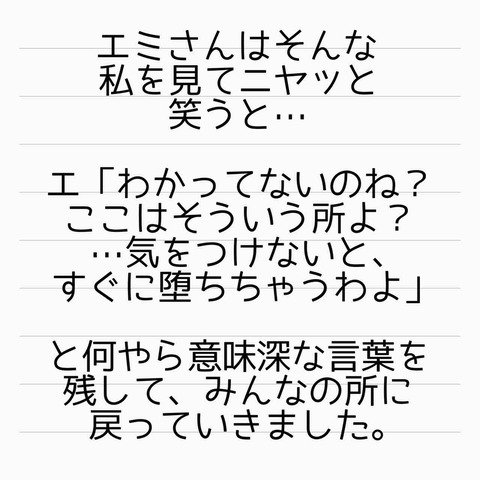 エミさんはそんな
私を見てニヤッと
笑うと…
エ「わかってないのね？
ここはそういう所よ？
…気をつけないと、
すぐに堕ちちゃうわよ」
と何やら意味深な言葉を
残して、みんなの所に
戻っていきました。